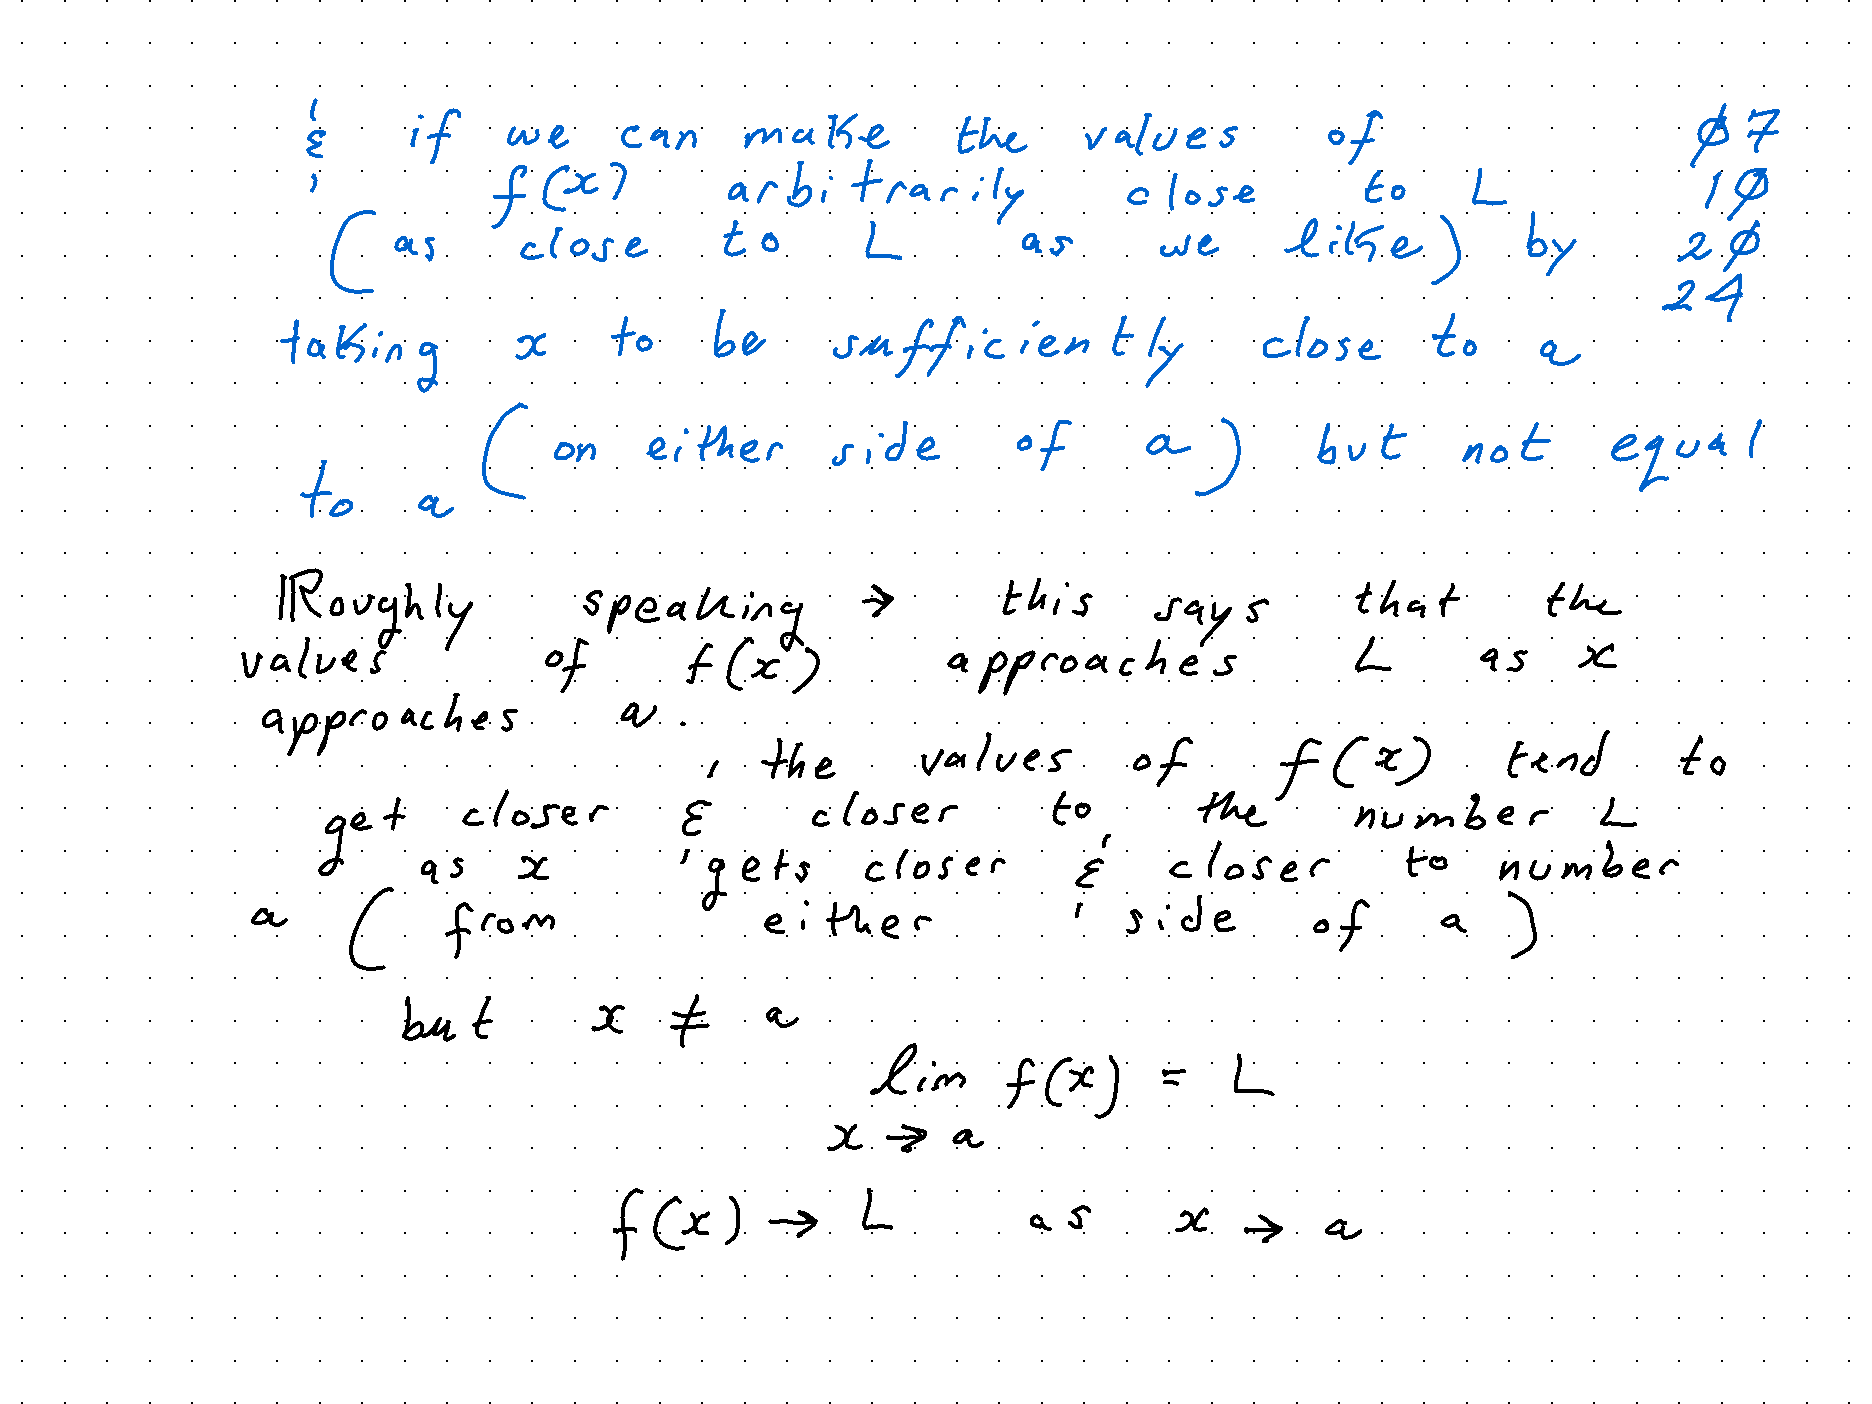 & if we can make the values of ø7
f(x) arbitrarily close to L 1ø
(as close to L as we like) by 2ø
24
taking x to be sufficiently close to a
(on either side of a) but not equal
to a
Roughly speaking → this says that the
values of f(x) approaches L as x
approaches a.
the values of f(x) tend to
get closer & closer to the number L
as x gets closer & closer to number
a (from either side of a)
but x ≠ a
lim f(x) = L
x → a
f(x) → L as x → a